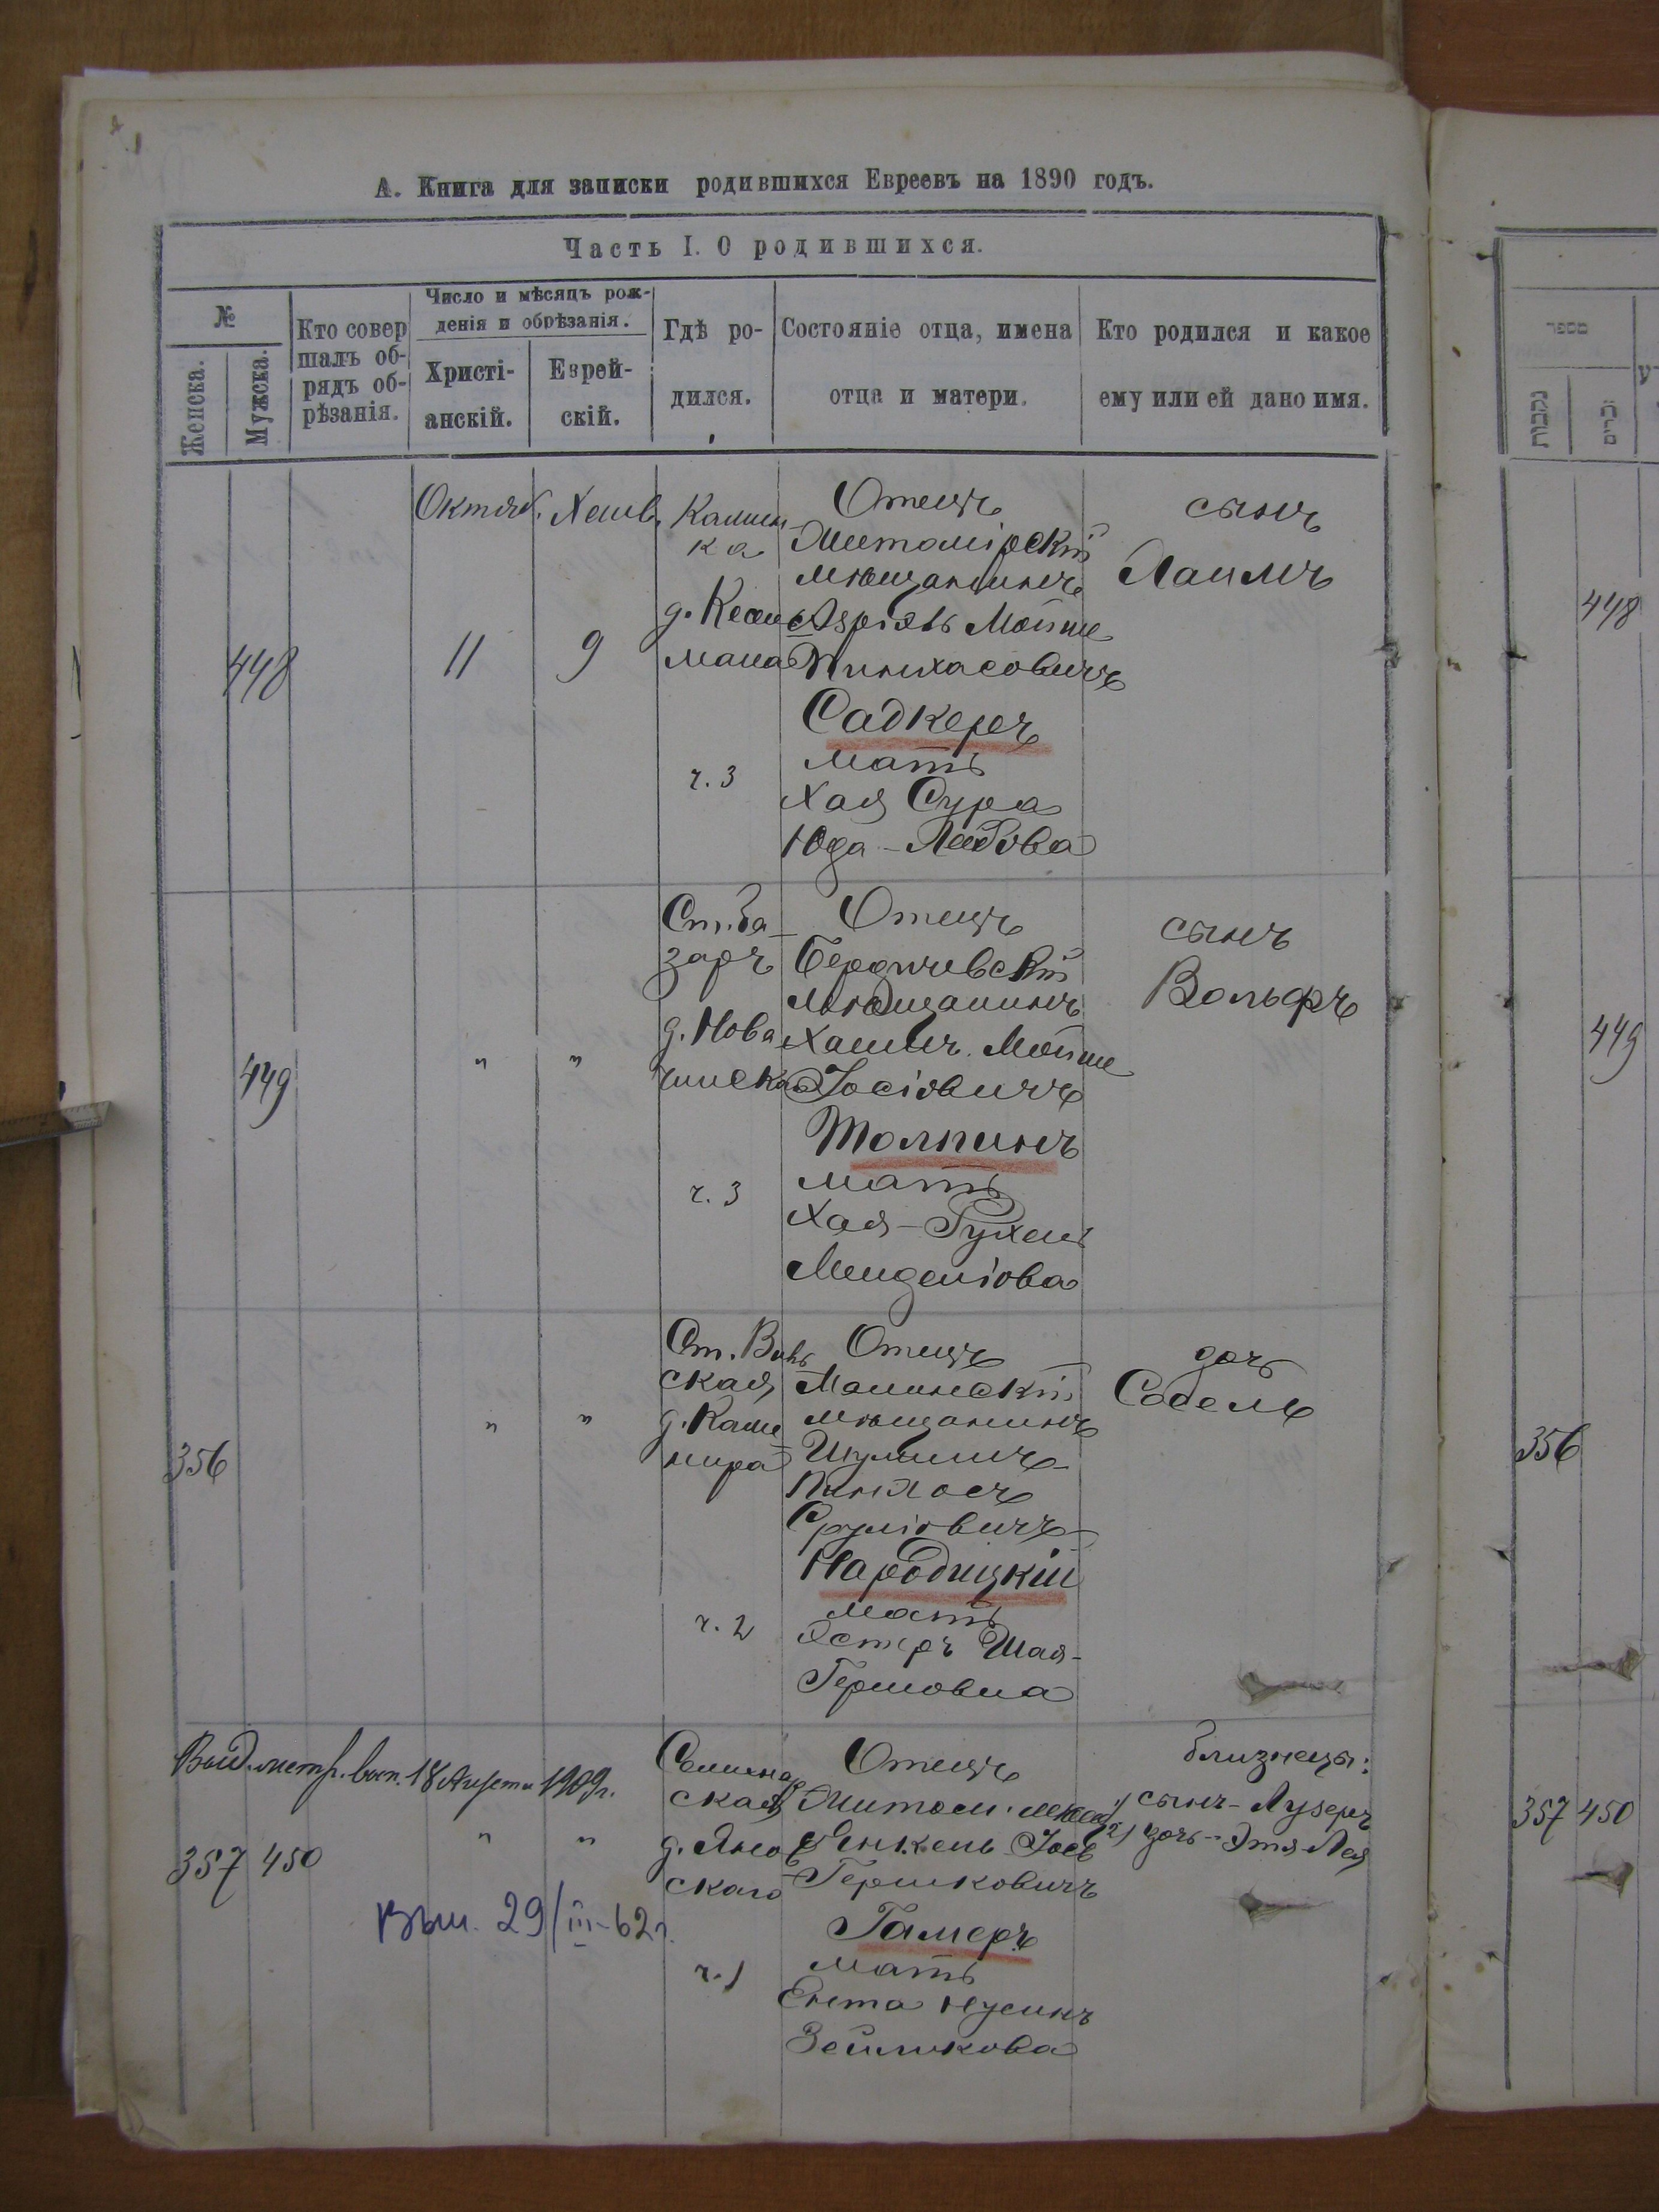 А. Книга для записки родившихся Евреевъ на 1890 годъ.
Часть I. О родившихся.
№
Женска.
Мужска.
Кто совер
шалъ об-
рядъ об-
рѣзанія.
Число и мѣсяцъ рож-
денія и обрѣзанія.
Христі-
анскій.
Еврей-
скій.
Гдѣ ро-
дился.
Состояніе отца, имена
отца и матери.
Кто родился и какое
ему или ей дано имя.
448
Октяб.
11
Хешв.
9
ка
ч. 3
Отецъ
мѣщанинъ
Азріэль Мойше
Пинхасовичъ
Садкеръ
мать
Хая Сура
Юда-Лейбова
сынъ
Хаимъ
449
"
"
Ст. ба-
заръ
ч. 3
Отецъ
Бердичевскій
мѣщанинъ
Хаимъ Мойше
Іосіовичъ
Толпинъ
мать
Хая-Рухель
Менделіова
сынъ
Вольфъ
356
"
"
Ст. Виль
ская
д. Каме
нира
ч. 2
Отецъ
мѣщанинъ
Шулимъ-
Пинхосъ
Сруліовичъ
Народицкій
мать
Эстеръ Шая-
Гершовна
дочь
Собель
Выд. метр. вып. 18 Августа 1909 г.
357 450
"
"
Семинар
ская
скаго
ч. 1
Отецъ
Житом. мѣщ.
Янкель Іось
Гершковичъ
Гамеръ
мать
Ента Нусинъ
Зейликова
близнецы:
1) сынъ - Лузеръ
2) дочь - Этя-Лея
Вып. 29/III-62 г.
מספר
נקבות
זכרים
448
449
356
357 450